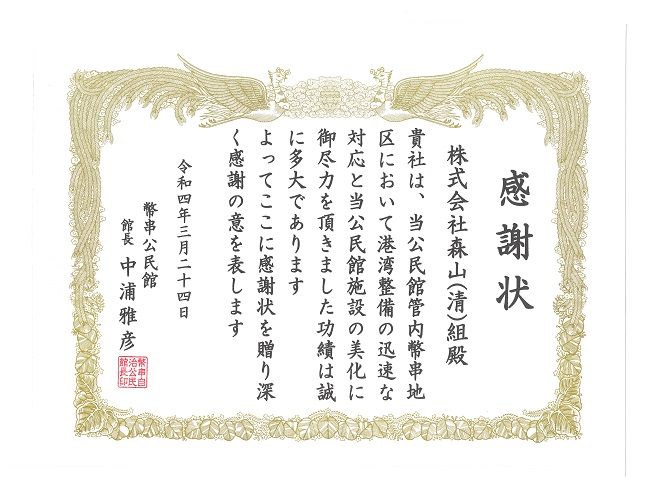 感謝状
株式会社森山(清)組殿
貴社は、当公民館管内幣串地
区において港湾整備の迅速な
対応と当公民館施設の美化に
御尽力を頂きました功績は誠
に多大であります
よってここに感謝状を贈り深
く感謝の意を表します
令和四年三月二十四日
幣串公民館
館長 中浦雅彦
幣串自
治公民
館長印